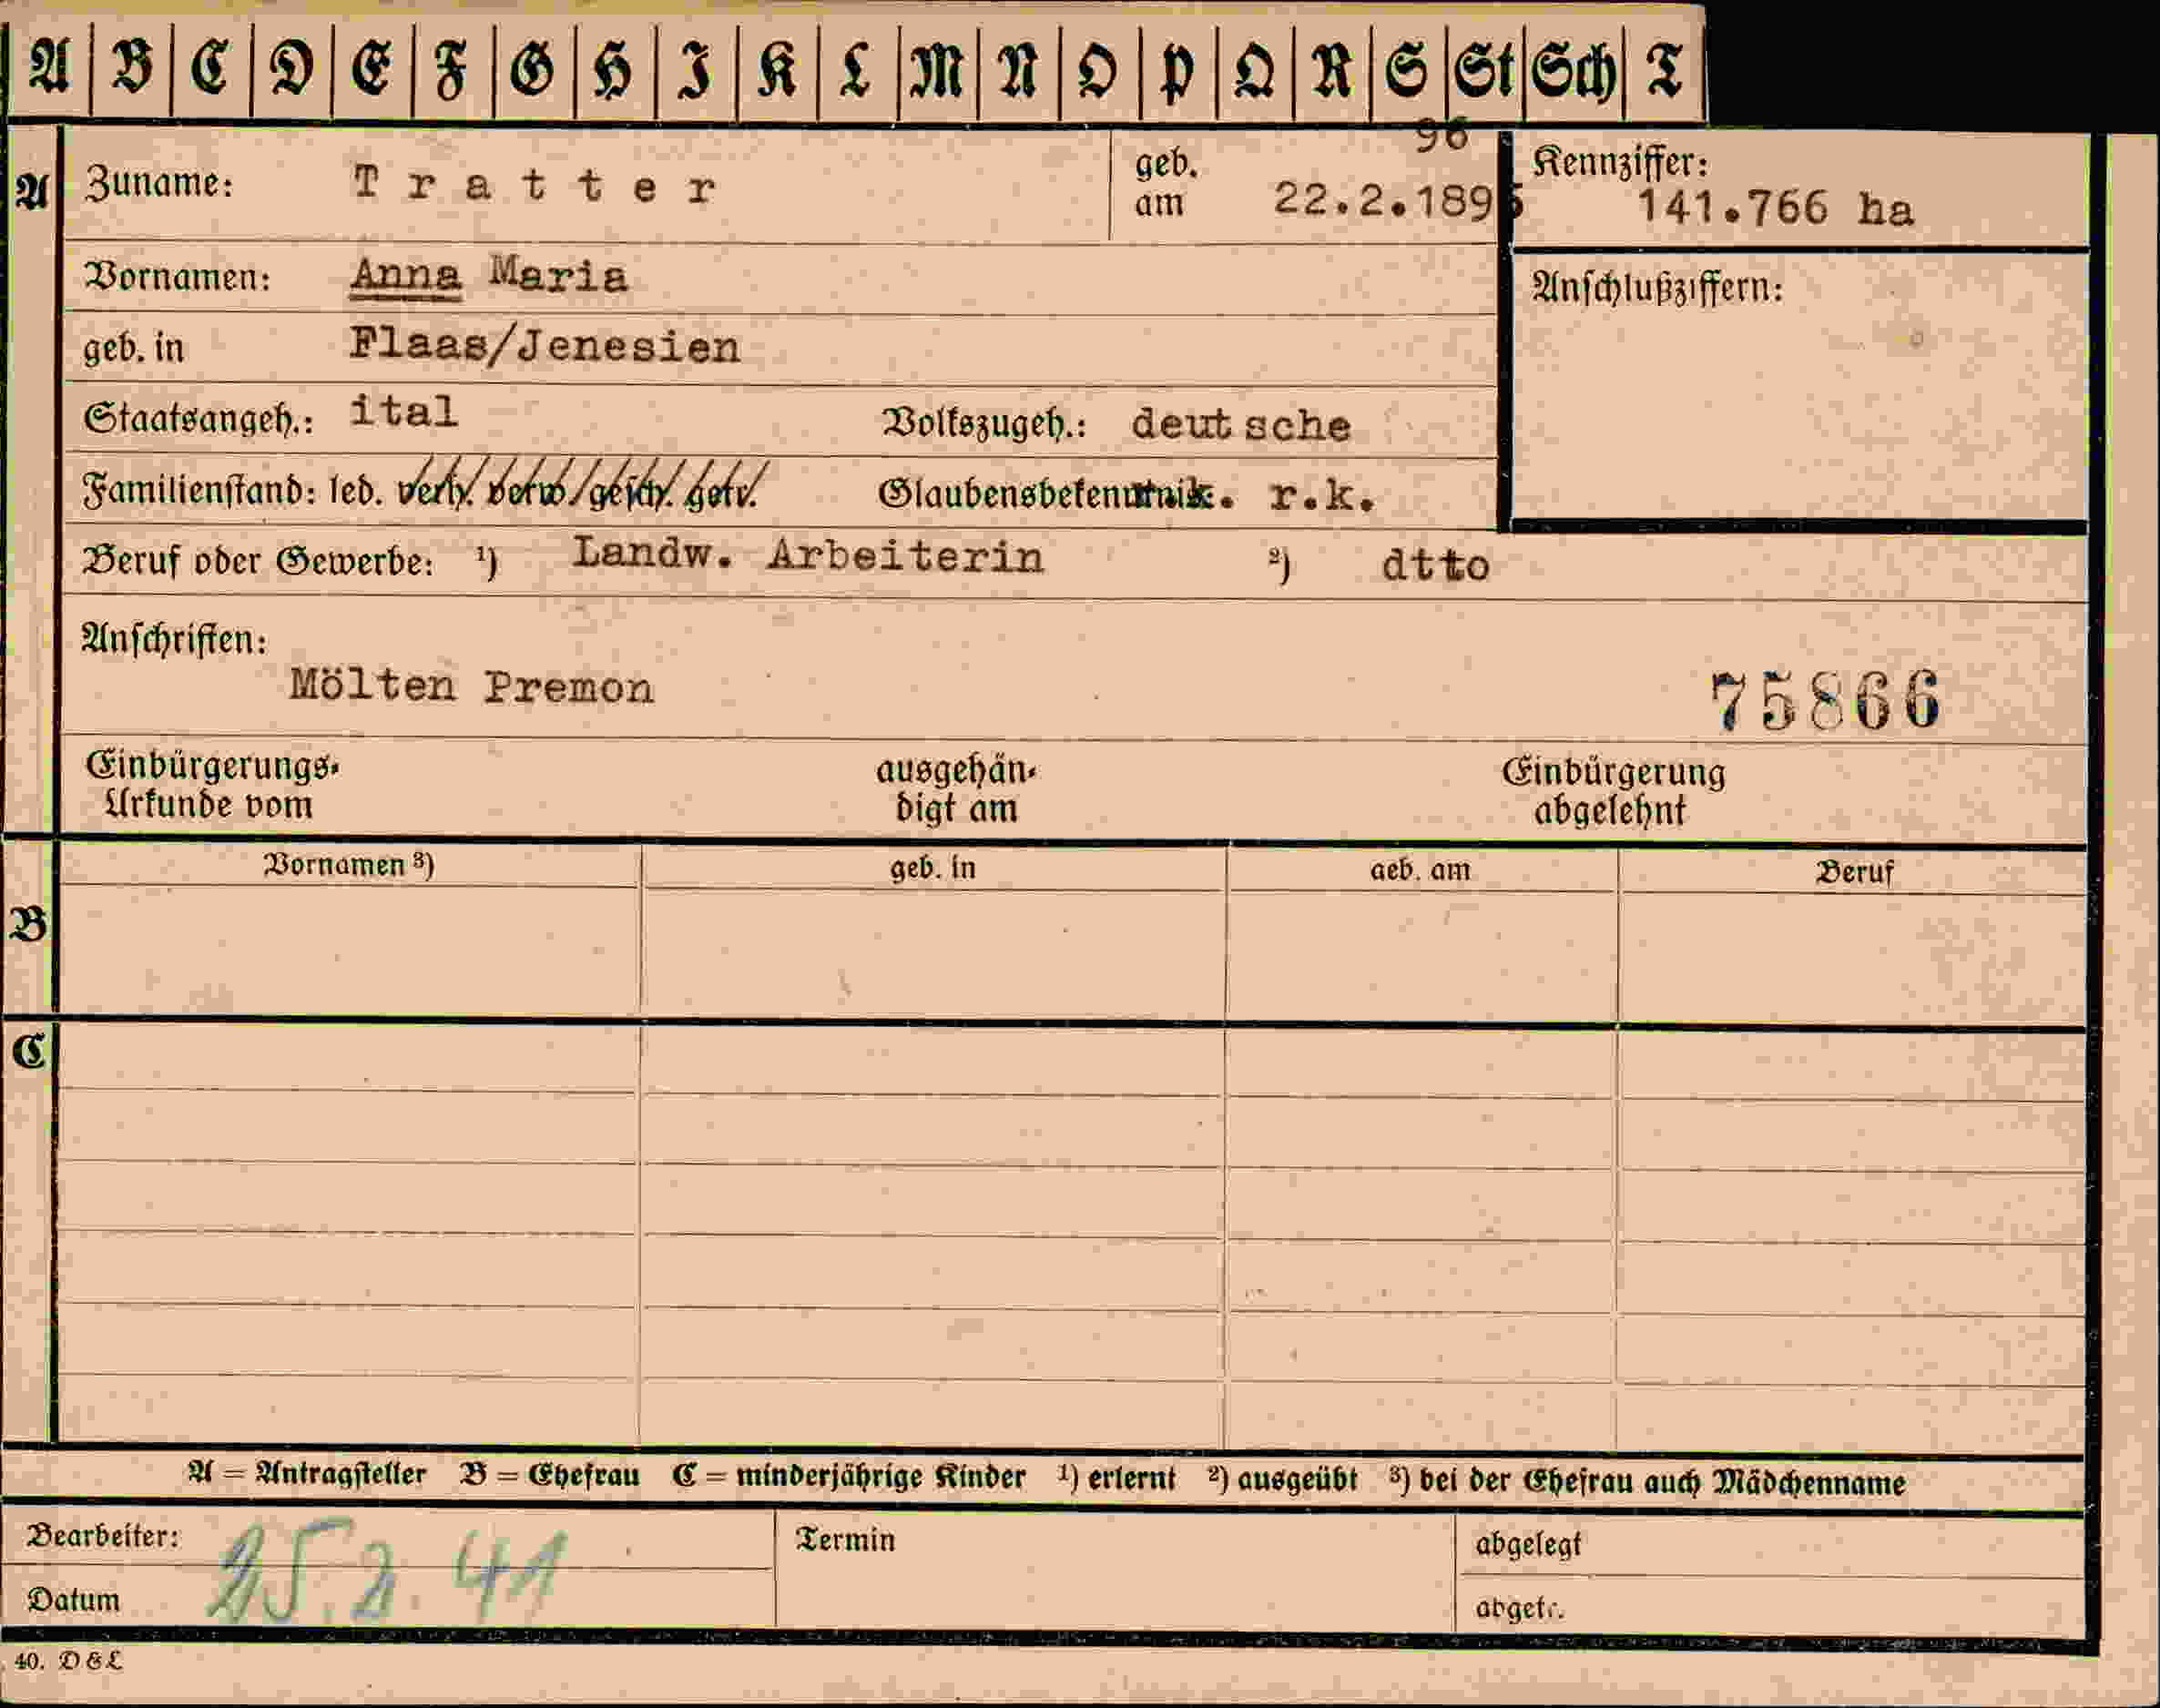 A B C D E F G H I K L M N O P Q R S St Sch T
96
A Zuname: Tratter geb. am 22.2.1895 Kennziffer: 141.766 ha
Vornamen: Anna Maria Anschlußziffern:
geb. in Flaas/Jenesien
Staatsangeh.: ital Volkszugeh.: deutsche
Familienstand: led. verh. verw. gesch. getr. Glaubensbekenntnis. r.k.
Beruf oder Gewerbe: ¹) Landw. Arbeiterin ²) dtto
Anschriften:
Mölten Premon 75866
Einbürgerungs- ausgehän- Einbürgerung
Urkunde vom digt am abgelehnt
Vornamen ³) geb. in geb. am Beruf
B
C
A = Antragsteller B = Ehefrau C = minderjährige Kinder ¹) erlernt ²) ausgeübt ³) bei der Ehefrau auch Mädchenname
Bearbeiter: Termin abgelegt
25.2.41
Datum abgetr.
40. D & L